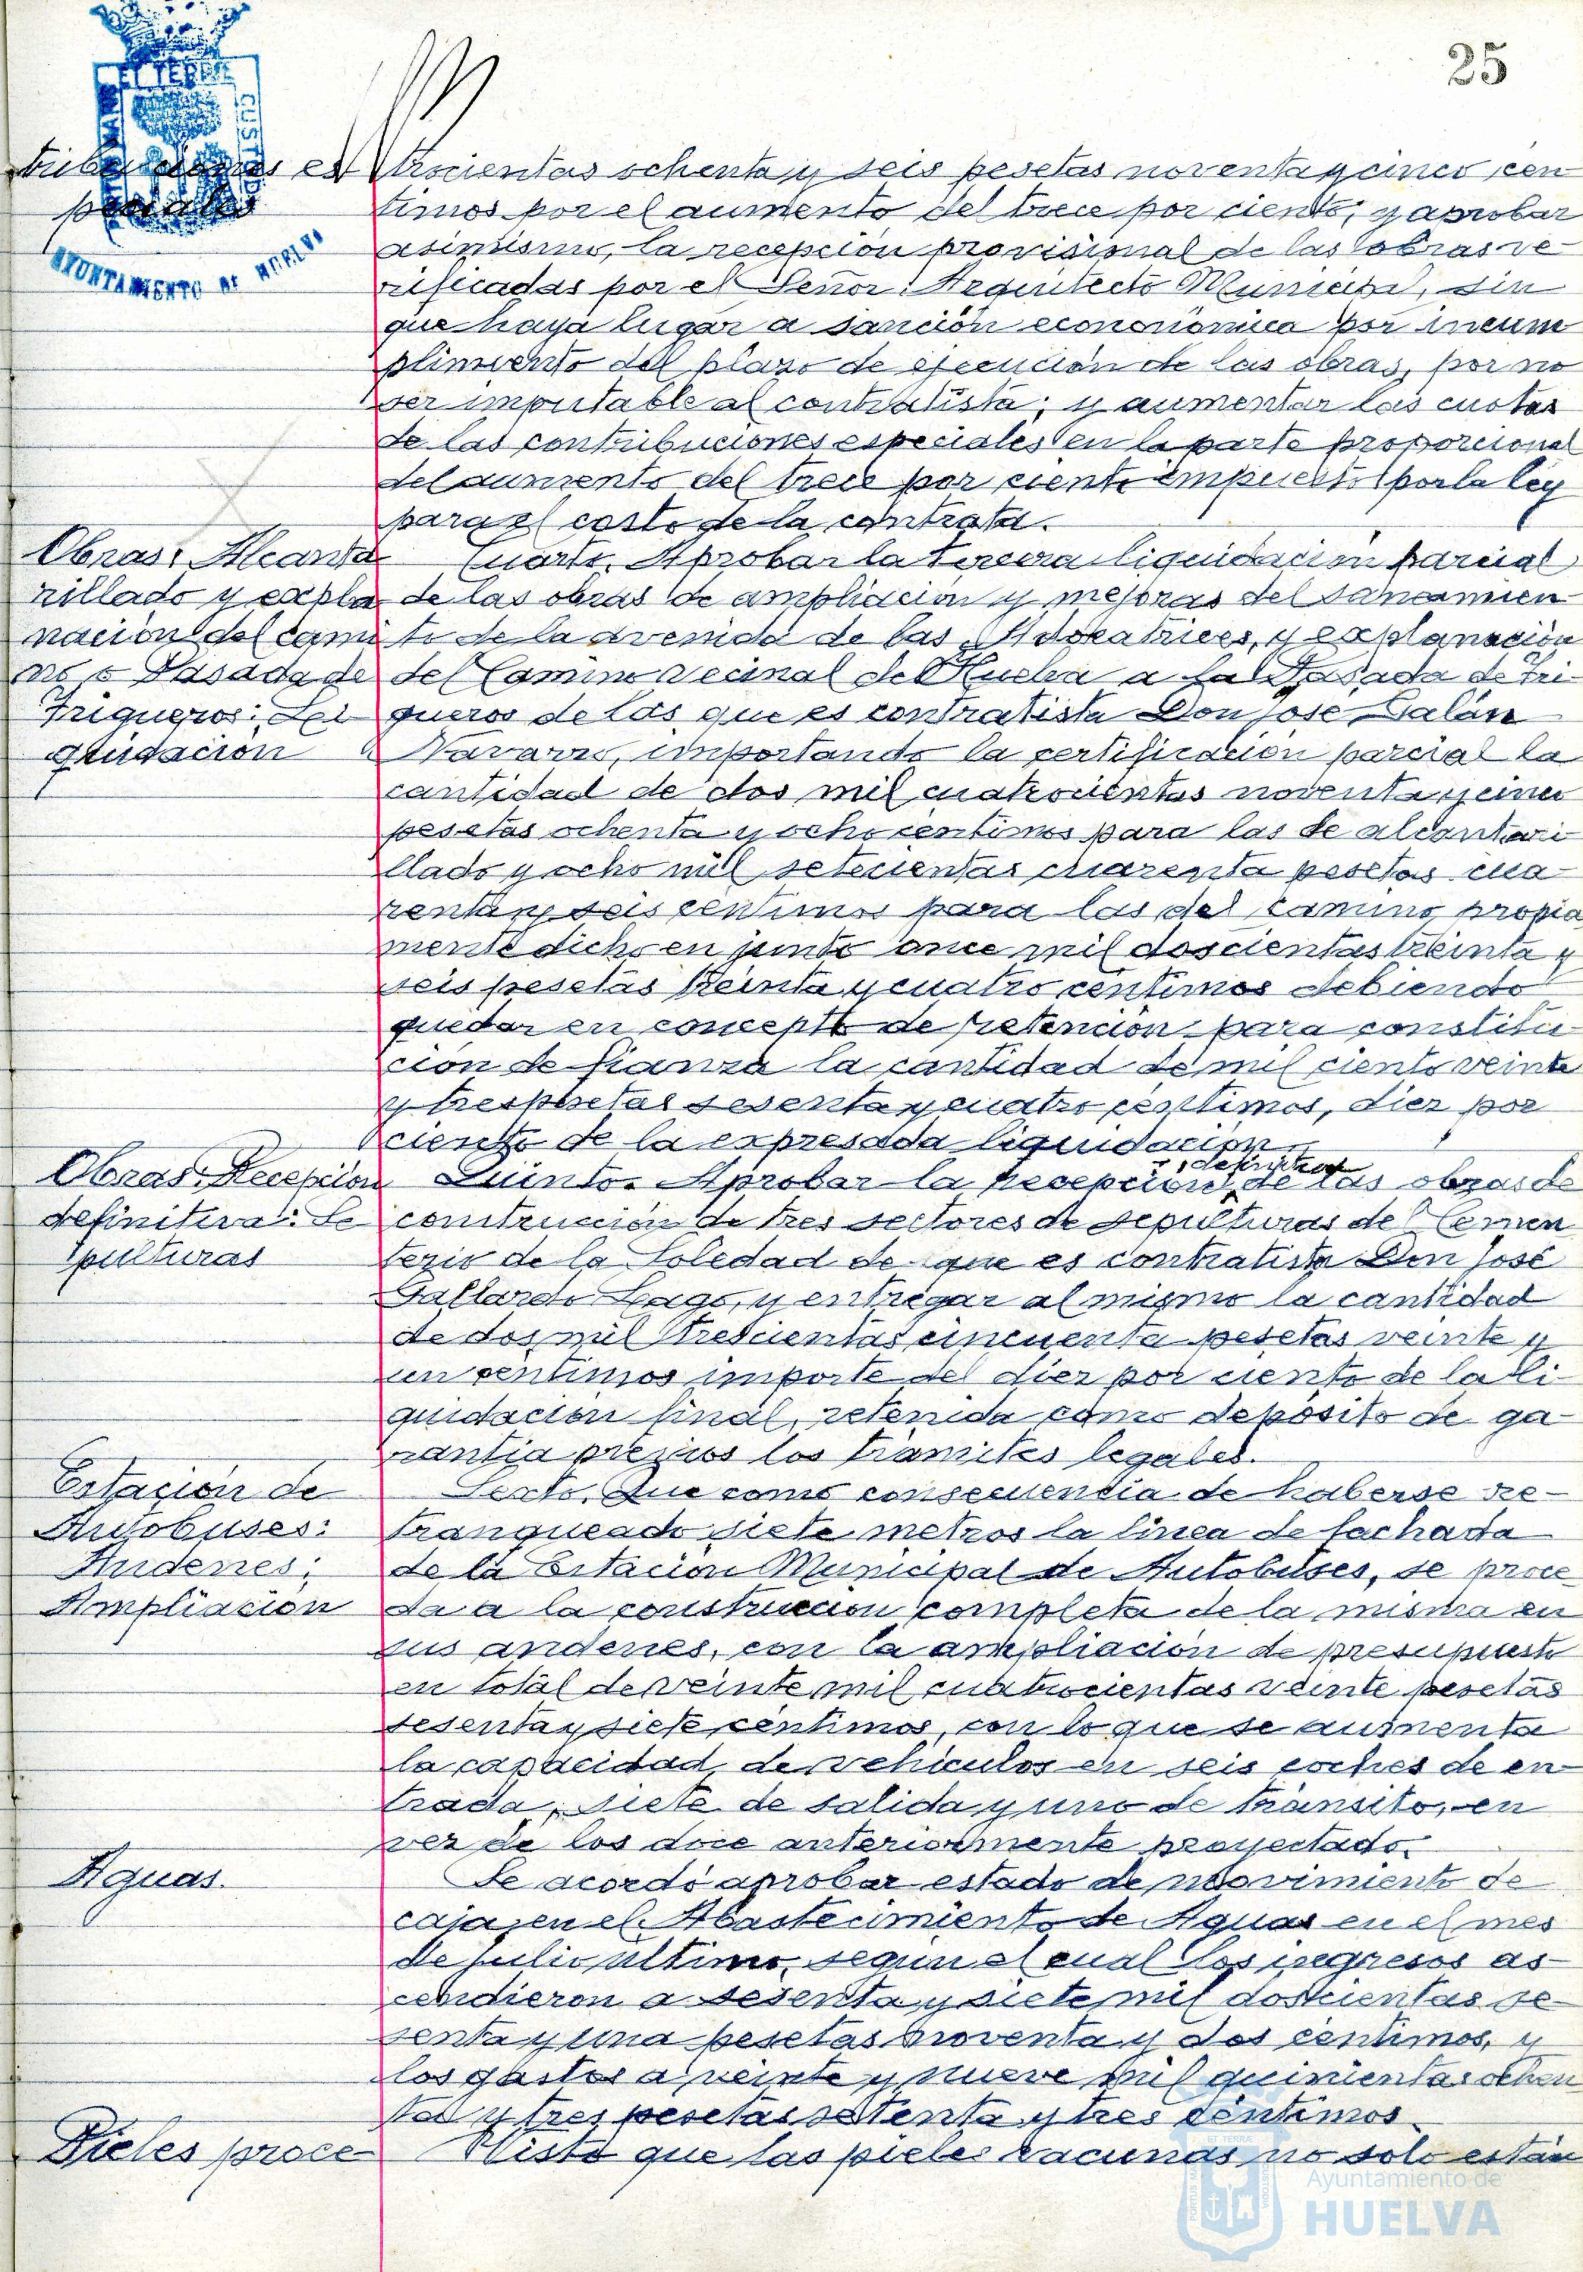 25
tribuciones es
peciales
AYUNTAMIENTO DE HUELVA
trocientas ochenta y seis pesetas noventa y cinco cen
timos por el aumento del trece por ciento; y aprobar
asimismo, la recepción provisional de las obras ve
rificadas por el Señor Arquitecto Municipal, sin
que haya lugar a sanción econonómica por incum
plimiento del plazo de ejecución de las obras, por no
ser imputable al contratista; y aumentar las cuotas
de las contribuciones especiales en la parte proporcional
del aumento del trece por ciento impuesto por la ley
para el costo de la contrata.
Obras: Alcanta
rillado y expla
nación del cami
no o Pasada de
Trigueros: Li
quidación
Cuarto. Aprobar la tercera liquidación parcial
de las obras de ampliación y mejoras del saneamien
to de la avenida de las Adoratrices, y explanación
del Camino vecinal de Huelva a la Pasada de Tri-
gueros de las que es contratista Don José Galán
Navarro, importando la certificación parcial la
cantidad de dos mil cuatrocientas noventa y cinco
pesetas ochenta y ocho centimos para las de alcantari-
llado y ocho mil setecientas cuarenta pesetas cua-
renta y seis centimos para las del camino propia
mente dicho en junto once mil doscientas treinta y
seis pesetas treinta y cuatro centimos debiendo
quedar en concepto de retención para constitu-
ción de fianza la cantidad de mil ciento veinte
y tres pesetas sesenta y cuatro céntimos, diez por
ciento de la expresada liquidación.
Obras: Recepción
definitiva: Se
pulturas
definitiva
Quinto. Aprobar la recepción de las obras de
construcción de tres sectores de sepulturas del Cemen
terio de la Soledad de que es contratista Don José
Gallardo Lago, y entregar al mismo la cantidad
de dos mil trescientas cincuenta pesetas veinte y
un centimos importe del diez por ciento de la li-
quidación final, retenida como depósito de ga-
rantía previos los trámites legales.
Estación de
Autobuses:
Andenes:
Ampliación
Sexto. Que como consecuencia de haberse re-
tranqueado siete metros la línea de fachada
de la Estación Municipal de Autobuses, se proce
da a la construcción completa de la misma en
sus andenes, con la ampliación de presupuesto
en total de veinte mil cuatrocientas veinte pesetas
sesenta y siete céntimos, con lo que se aumenta
la capacidad de vehículos en seis coches de en-
trada, siete de salida y uno de tránsito, en
vez de los doce anteriormente proyectado.
Aguas.
Se acordó aprobar estado de movimiento de
caja, en el Abastecimiento de Aguas en el mes
de julio último, según el cual los ingresos as-
cendieron a sesenta y siete mil doscientas se-
senta y una pesetas noventa y dos céntimos, y
los gastos a veinte y nueve mil quinientas ochen
ta y tres pesetas setenta y tres céntimos.
Pieles proce-
Visto que las pieles vacunas no solo están
Ayuntamiento de
HUELVA